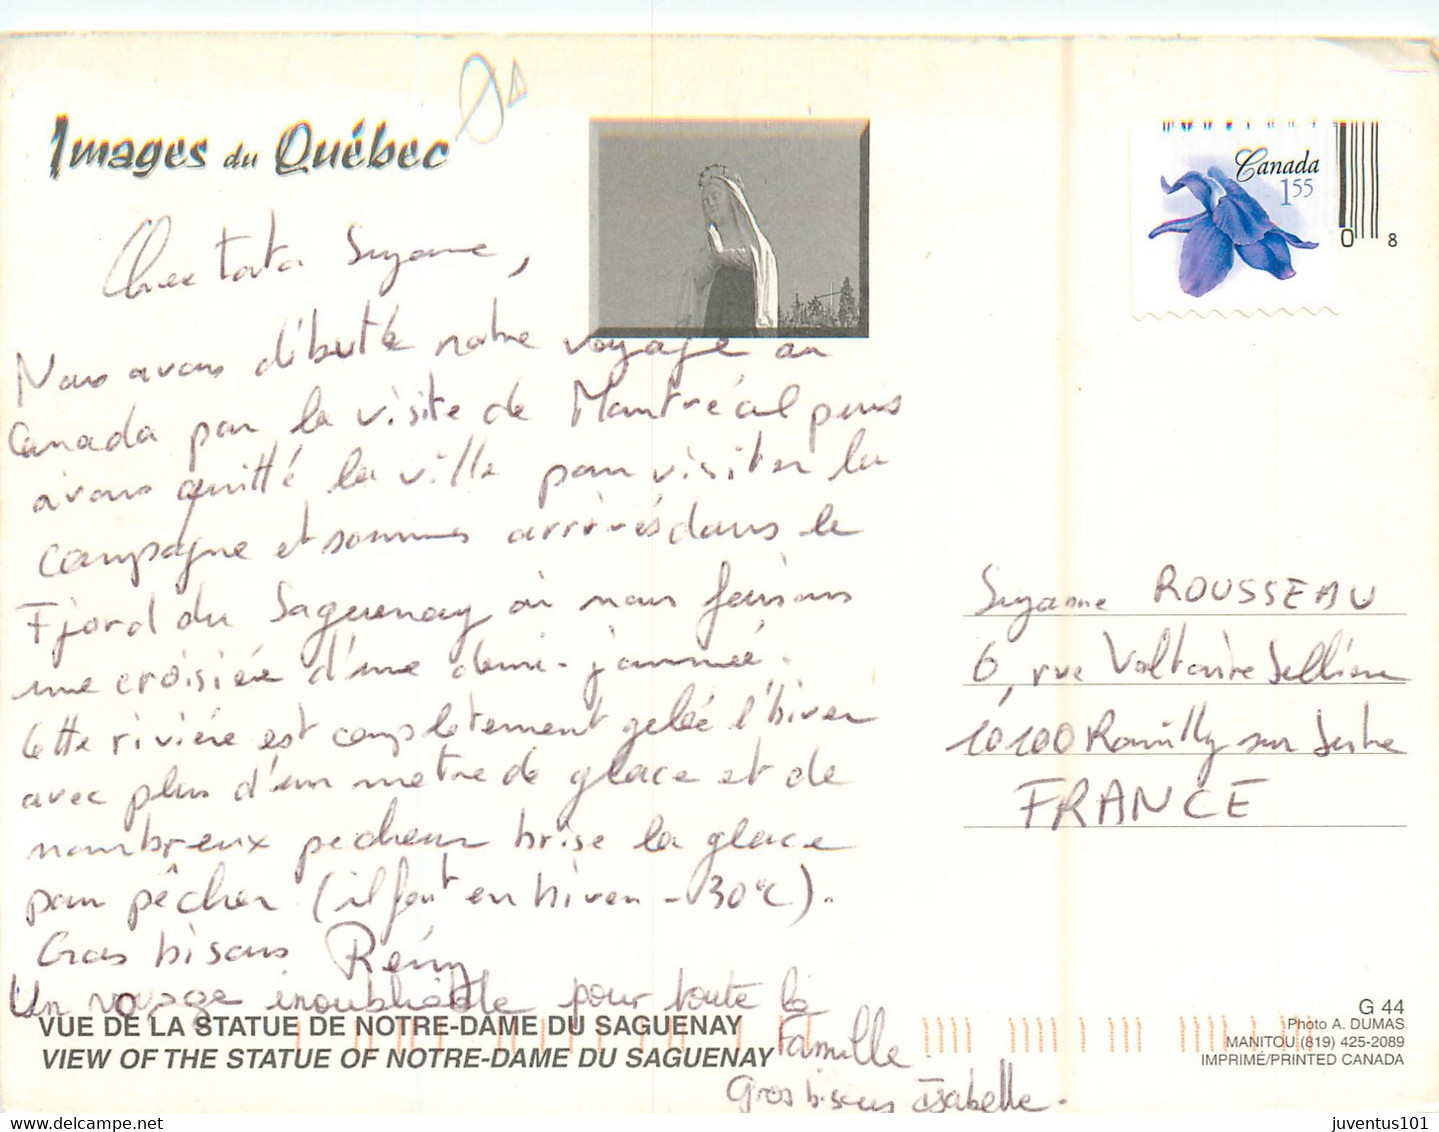 Images du Québec
Canada
1.55
0 8
Chère tata Suzanne,
Nous avons débuté notre voyage au
Canada par la visite de Montréal puis
avons quitté la ville pour visiter la
campagne et sommes arrivés dans le
Fjord du Saguenay où nous faisons
une croisière d'une demi-journée.
Cette rivière est complètement gelée l'hiver
avec plus d'un mètre de glace et de
nombreux pecheur brise la glace
pour pêcher (il fait en hiver -30°C).
Gros bisous Rémy
Un voyage inoubliable pour toute la
famille
Gros bisous Isabelle.
Suzanne ROUSSEAU
6, rue Voltaire Sellières
10100 Romilly sur Seine
FRANCE
VUE DE LA STATUE DE NOTRE-DAME DU SAGUENAY
VIEW OF THE STATUE OF NOTRE-DAME DU SAGUENAY
G 44
Photo A. DUMAS
MANITOU (819) 425-2089
IMPRIMÉ/PRINTED CANADA
juventus101